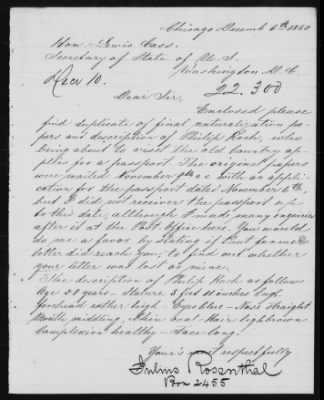 Chicago Decemb 6th 1860
Hon. Lewis Cass.
Secretary of State of U. S.
Washington D. C.
Decr 10.
22.300
Dear Sir.
Enclosed please
find duplicate of final naturalization pa
pers and description of Philip Koch, who
being about to visit the old Country ap
plies for a passport. The original papers
were mailed November 9th a c with an appli
cation for the passport dated November 6th,
but I did not receive the passport up
to this date, although I made many inquiries
after it at the Post Office here. You would
do me a favor by stating if that former
letter did reach you, to find out whether
your letter was lost or mine.
The description of Philip Koch as follows
Age 30 years - Stature 5 feet inches Engl.
forehead rather high - Eyes blue - Nose straight
Mouth middling, Chin oval Hair light brown
Complexion healthy - Face long.
Yours most respectfully
Julius Rosenthal
Box 2455